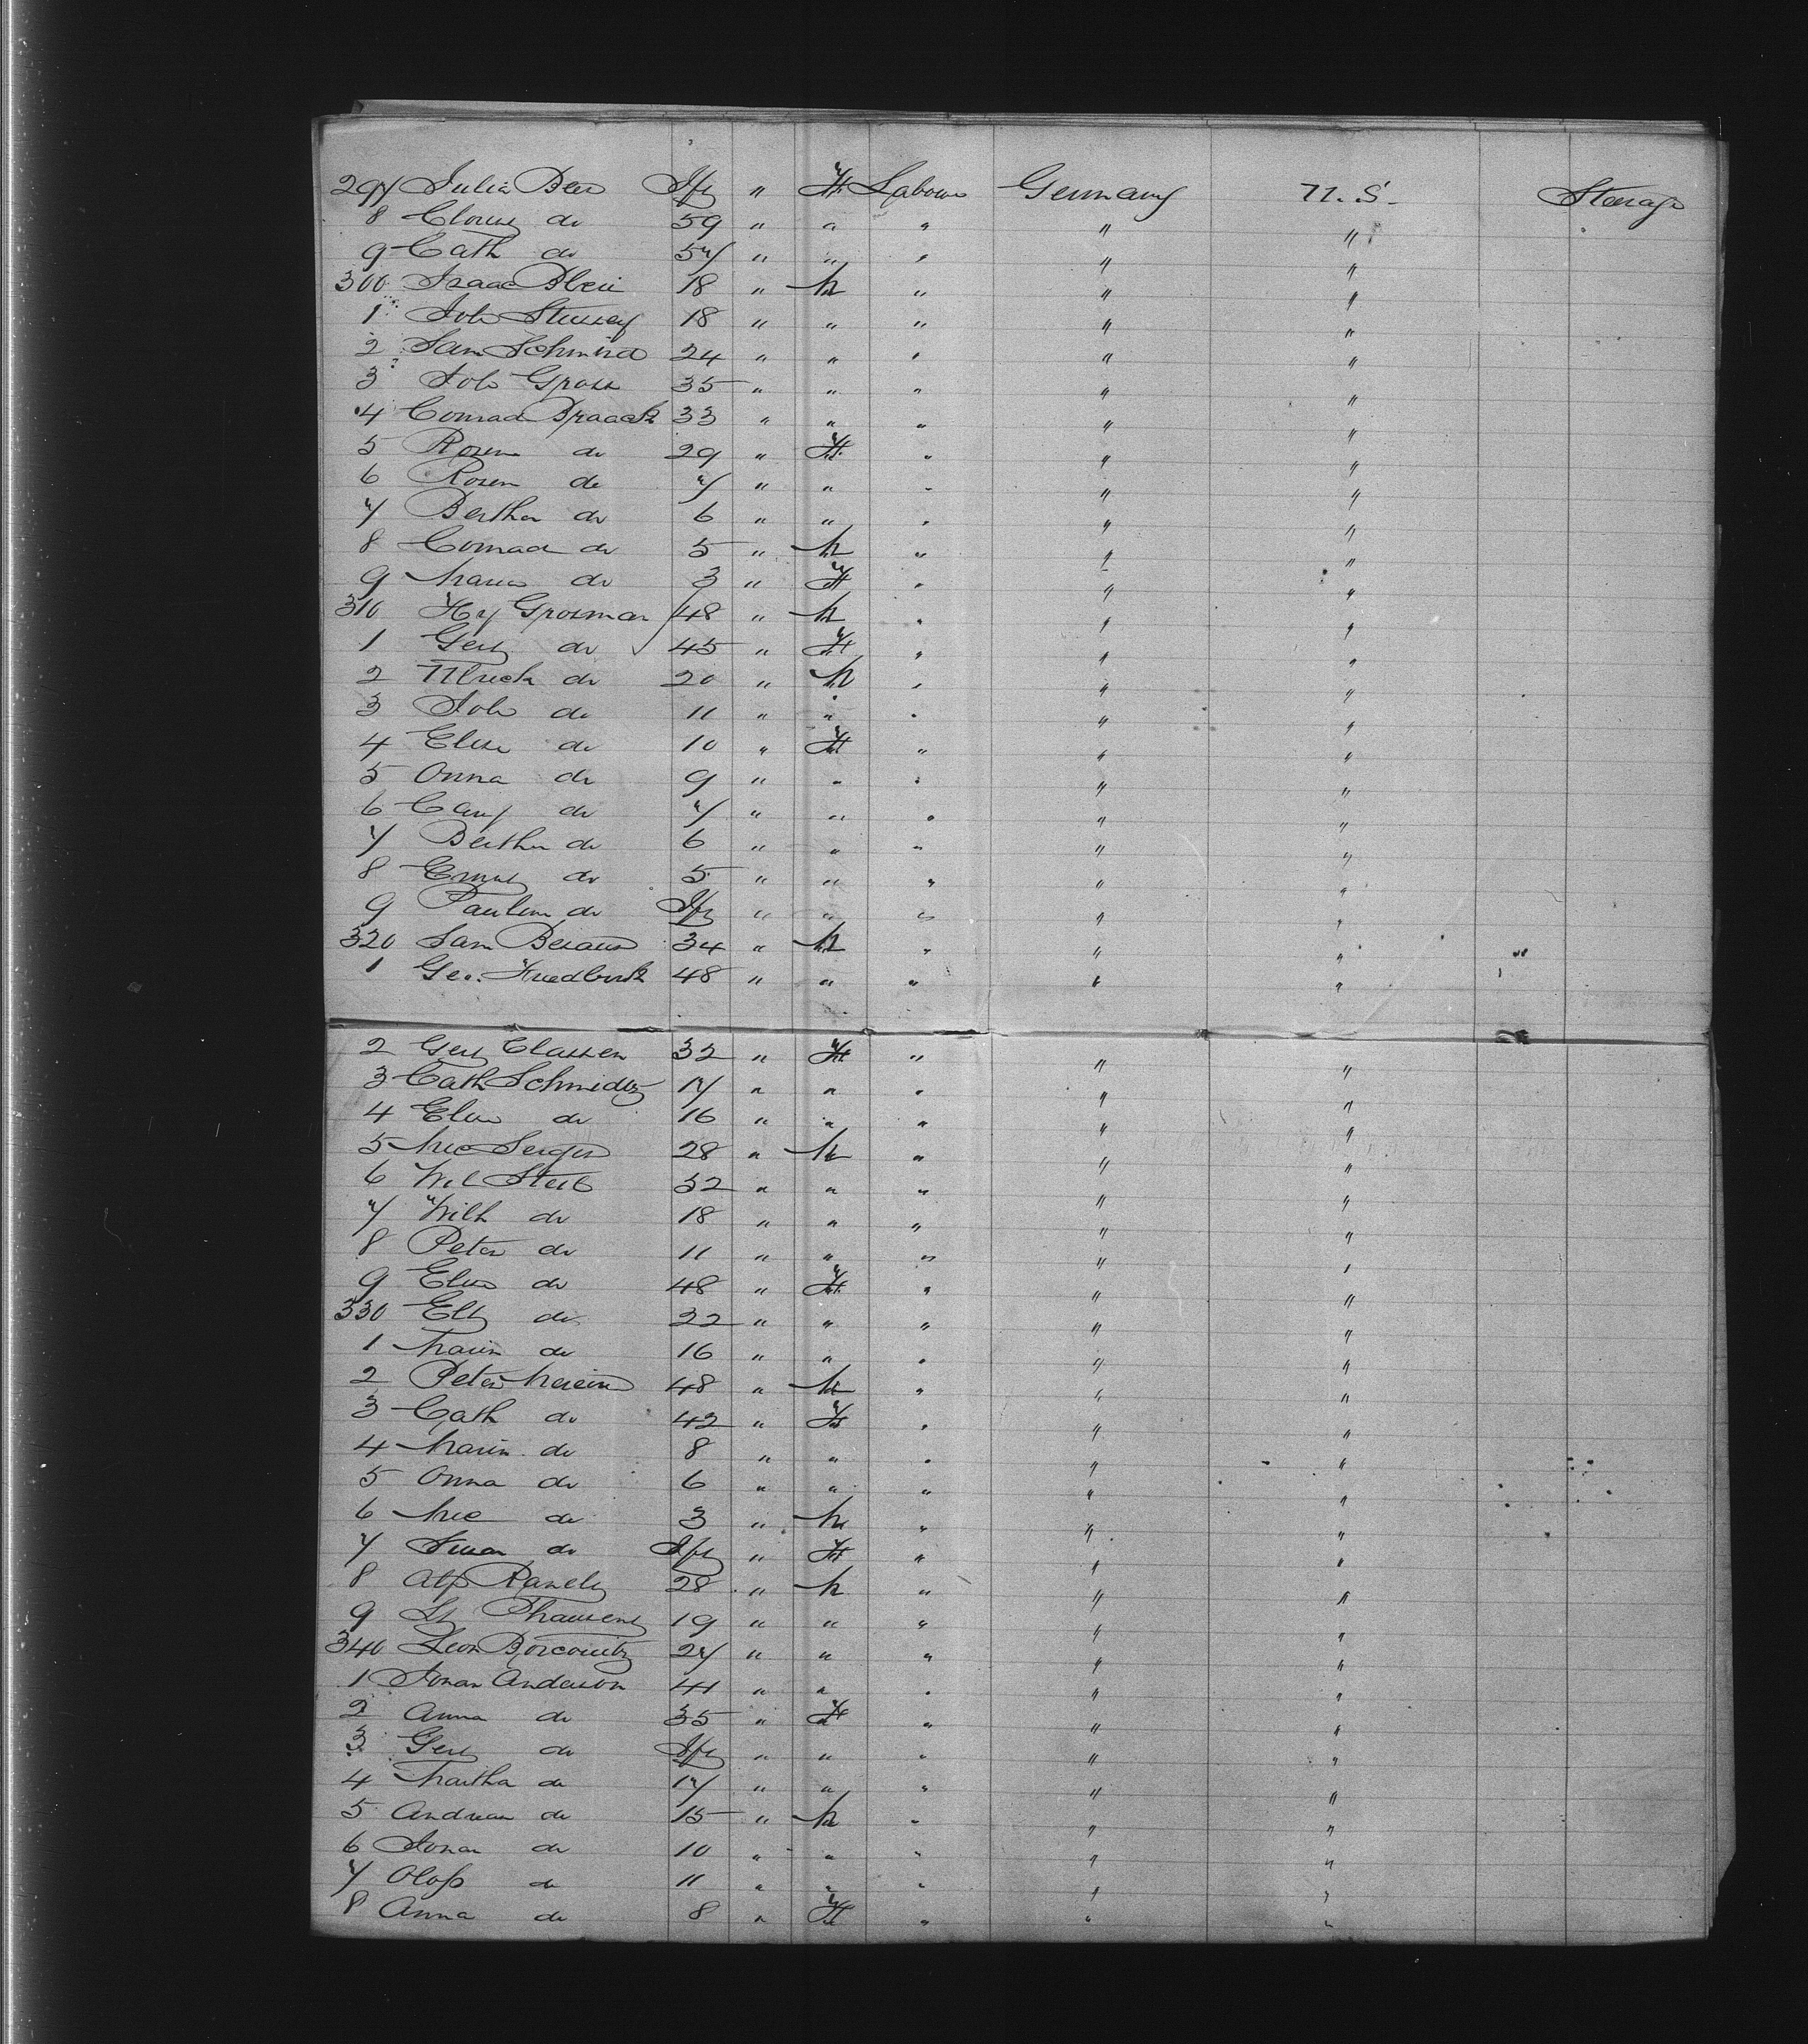 297 Julia Beer Inf " F Labour Germany U.S. Steerage
8 do 59 " " " " "
9 Cath do 57 " " " " "
300 Isaac 18 " M " " "
1 Joh Stussey 18 " " " " "
2 Sam Schmid 24 " " " " "
3 Joh Gross 35 " " " " "
4 Conrad Braack 33 " " " " "
5 Rosina do 29 " F " " "
6 Rosin do 7 " " " " "
7 Bertha do 6 " " " " "
8 Conrad do 5 " M " " "
9 Maria do 3 " F " " "
310 Hy Grosman 48 " M " " "
1 Gert do 45 " F " " "
2 Ulrich do 20 " M " " "
3 Joh do 11 " " " " "
4 Elise do 10 " F " " "
5 Anna do 9 " " " " "
6 do 7 " " " " "
7 Bertha do 6 " " " " "
8 do 5 " " " " "
9 Paulin do Inf " " " " "
320 Sam 34 " M " " "
1 Geo. 48 " " " " "
2 Gert Classen 32 " F " " "
3 Cath Schmidtz 17 " " " " "
4 Elise do 16 " " " " "
5 Nic 28 " M " " "
6 52 " " " " "
7 Wilh do 18 " " " " "
8 Peter do 11 " " " " "
9 Elise do 48 " F " " "
330 Elz do 22 " " " " "
1 Marin do 16 " " " " "
2 Peter 48 " M " " "
3 Cath do 42 " F " " "
4 Marin do 8 " " " " "
5 Anna do 6 " " " " "
6 Nic do 3 " M " " "
7 Susan do Inf " F " " "
8 Alf 28 " M " " "
9 19 " " " " "
340 Leon 27 " " " " "
1 Jonas Anderson 41 " " " " "
2 Anna do 35 " F " " "
3 Gert do Inf " " " " "
4 Martha do 17 " " " " "
5 Andreas do 15 " M " " "
6 Jonas do 10 " " " " "
7 Olof do 11 " " " " "
8 Anna do 8 " F " " "